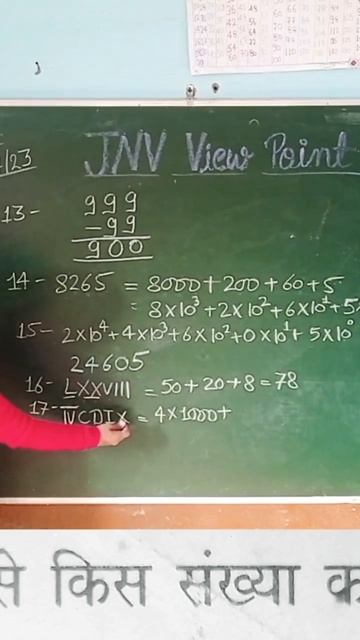 /23 JNV View Point
13- 999
-99
900
14- 8265 = 8000+200+60+5
= 8×10³+2×10²+6×10¹+5×
15- 2×10⁴+4×10³+6×10²+0×10¹+5×10⁰
24605
16- LXXVIII = 50+20+8=78
17- I̅V̅CDIX = 4×1000+
से किस संख्या क